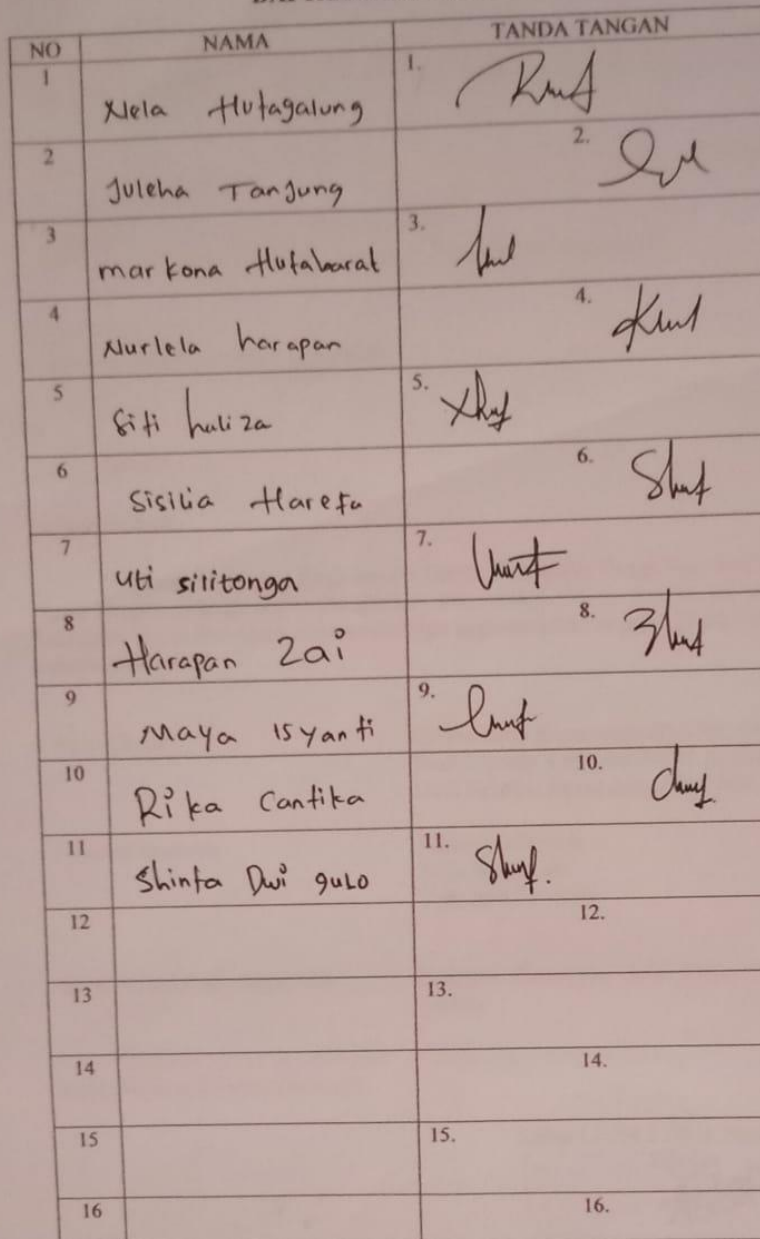 NO NAMA TANDA TANGAN
1 Nela Hutagalung 1.
2 Juleha Tanjung 2.
3 markona Hutabarat 3.
4 Nurlela harapan 4.
5 Siti huliza 5.
6 Sisilia Harefa 6.
7 uti silitonga 7.
8 Harapan Zai 8.
9 Maya isyanti 9.
10 Rika Cantika 10.
11 Shinta Dwi gulo 11.
12 12.
13 13.
14 14.
15 15.
16 16.